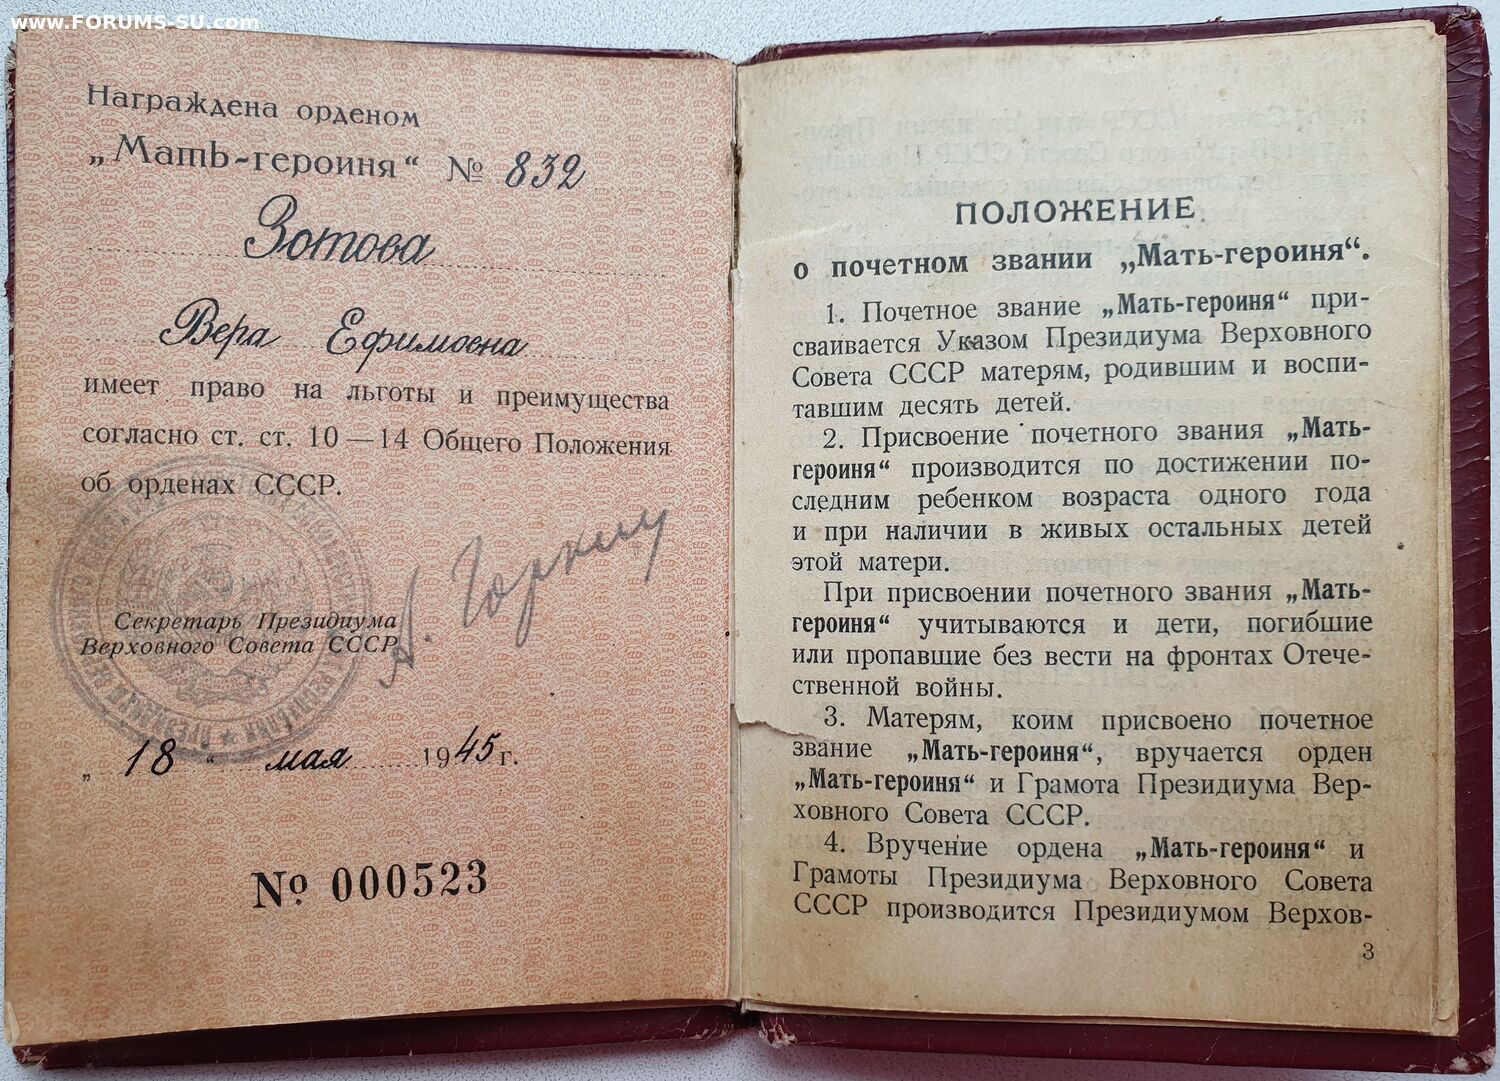 www.FORUMS-SU.com
Награждена орденом
„Мать-героиня“ № 832
Зотова
Вера Ефимовна
имеет право на льготы и преимущества
согласно ст. ст. 10—14 Общего Положения
об орденах СССР.
Секретарь Президиума
Верховного Совета СССР
А. Горкин
„ 18 “ мая 1945 г.
№ 000523
ПОЛОЖЕНИЕ
о почетном звании „Мать-героиня“.
1. Почетное звание „Мать-героиня“ при-
сваивается Указом Президиума Верховного
Совета СССР матерям, родившим и воспи-
тавшим десять детей.
2. Присвоение почетного звания „Мать-
героиня“ производится по достижении по-
следним ребенком возраста одного года
и при наличии в живых остальных детей
этой матери.
При присвоении почетного звания „Мать-
героиня“ учитываются и дети, погибшие
или пропавшие без вести на фронтах Отече-
ственной войны.
3. Матерям, коим присвоено почетное
звание „Мать-героиня“, вручается орден
„Мать-героиня“ и Грамота Президиума Вер-
ховного Совета СССР.
4. Вручение ордена „Мать-героиня“ и
Грамоты Президиума Верховного Совета
СССР производится Президиумом Верхов-
3